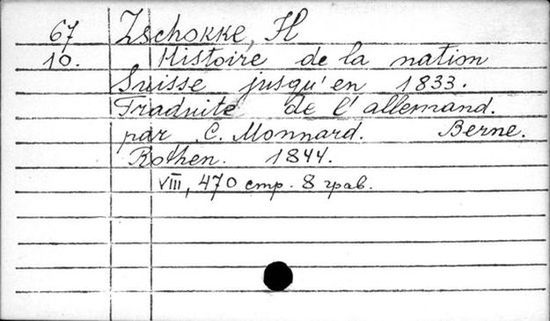 67 Zschokke, H
10. Histoire de la nation
Suisse jusqu'en 1833.
Traduite de l'allemand.
par C. Monnard. Berne.
Rothen. 1844.
VIII, 470 стр. 8 грав.